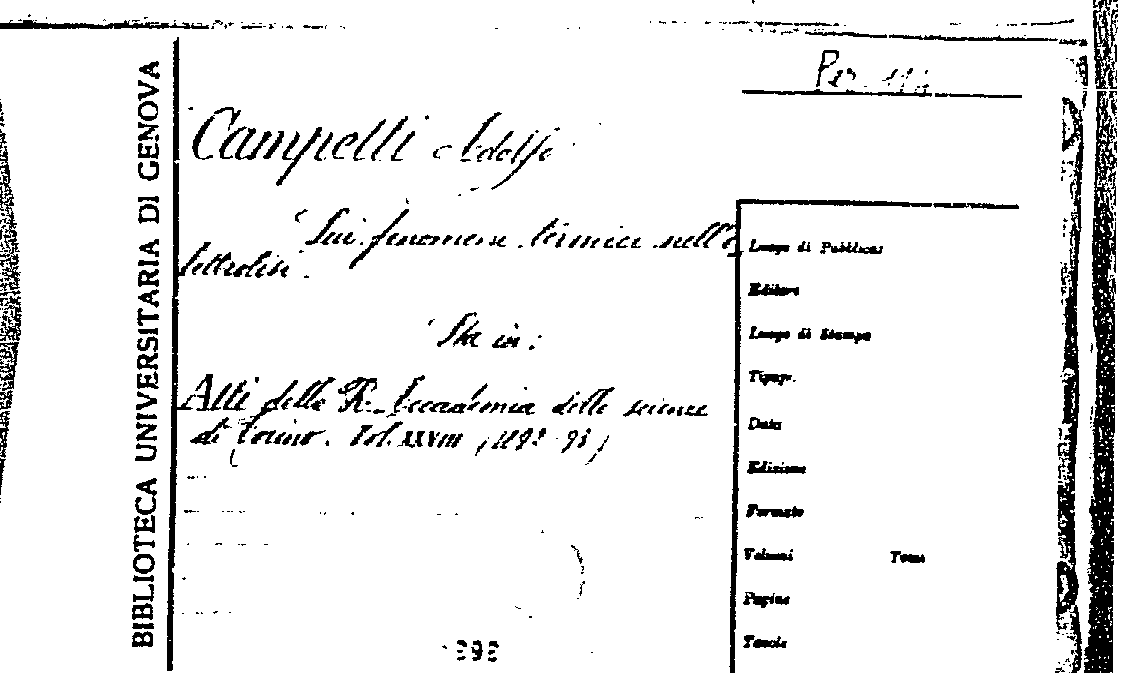 BIBLIOTECA UNIVERSITARIA DI GENOVA
Per.
Campetti Adolfo
Sui fenomeni termici nell'e
lettrolisi.
Sta in:
Atti della R. Accademia delle scienze
di Torino. Vol. XXVIII (1892-93)
Luogo di Pubblicaz
Editore
Luogo di Stampa
Tipogr.
Data
Edizione
Formato
Volumi Tomi
Pagine
Tavole